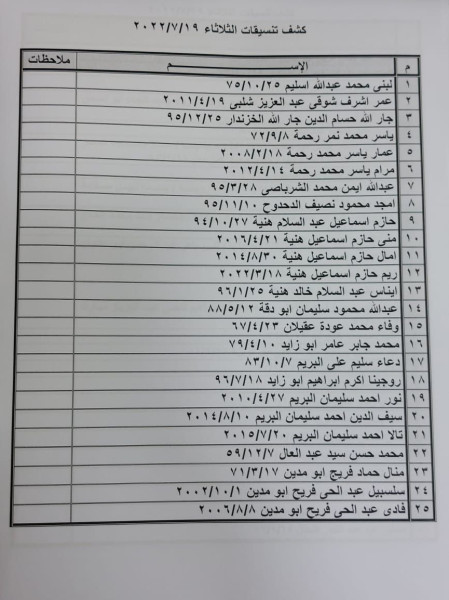 كشف تنسيقات الثلاثاء ٢٠٢٢/٧/١٩
م الإســـم ملاحظات
١ لبنى محمد عبدالله اسليم ٧٥/١٠/٢٥
٢ عمر اشرف شوقي عبد العزيز شلبى ٢٠١١/٤/١٩
٣ جار الله حسام الدين جار الله الخزندار ٩٥/١٢/٢٥
٤ ياسر محمد نمر رحمة ٧٢/٩/٨
٥ عمار ياسر محمد رحمة ٢٠٠٨/٢/١٨
٦ مرام ياسر محمد رحمة ٢٠١٢/٤/١٤
٧ عبدالله ايمن محمد الشرباصى ٩٥/٣/٢٨
٨ امجد محمود نصيف الدحدوح ٩٥/١١/١٠
٩ حازم اسماعيل عبد السلام هنية ٩٤/١٠/٢٧
١٠ منى حازم اسماعيل هنية ٢٠١٦/٤/٢١
١١ امال حازم اسماعيل هنية ٢٠١٤/٨/٣٠
١٢ ريم حازم اسماعيل هنية ٢٠٢٢/٣/١٨
١٣ ايناس عبد السلام خالد هنية ٩٦/١/٢٥
١٤ عبدالله محمود سليمان ابو دقة ٨٨/٥/١٢
١٥ وفاء محمد عودة عقيلان ٦٧/٤/٢٣
١٦ محمد جابر عامر ابو زايد ٧٩/٤/١٠
١٧ دعاء سليم على البريم ٨٣/١٠/٧
١٨ روجينا اكرم ابراهيم ابو زايد ٩٦/٧/١٨
١٩ نور احمد سليمان البريم ٢٠١٠/٤/٢٧
٢٠ سيف الدين احمد سليمان البريم ٢٠١٤/٨/١٠
٢١ تالا احمد سليمان البريم ٢٠١٥/٧/٢٠
٢٢ محمد حسن سيد عبد العال ٥٩/١٢/٧
٢٣ منال حماد فريح ابو مدين ٧١/٣/١٧
٢٤ سلسبيل عبد الحى فريح ابو مدين ٢٠٠٢/١٠/١
٢٥ فادى عبد الحى فريح ابو مدين ٢٠٠٦/٨/٨